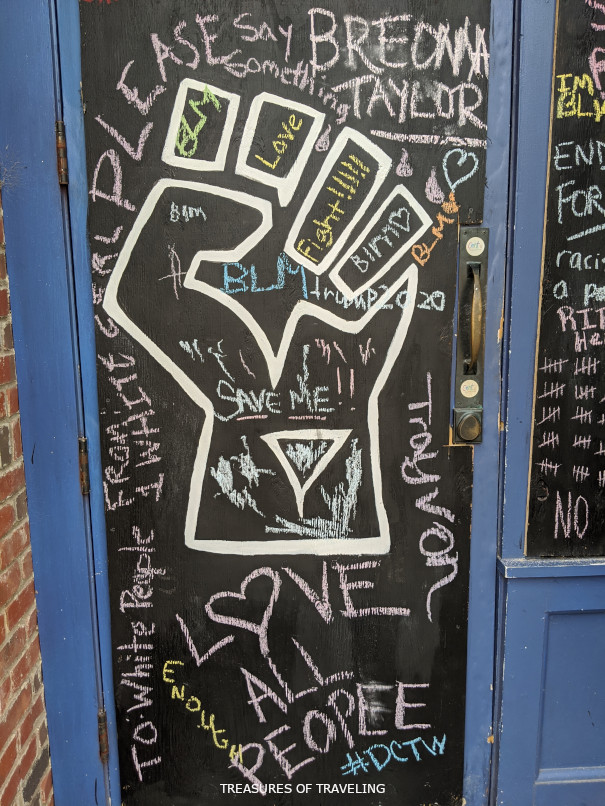 PLEASE Say Something
BREONNA
TAYLOR
BLM
Love
Fight!!!!!!
BLM
BLM
BLM
BLM
trump2020
SAVE ME!!
Trayvon
TO: White People
FROM: White Girl
LOVE
ALL
PEOPLE
ENOUGH
#DCTW
IM
BLM
END
FOR
racis
a p
RIP
He
NO
TREASURES OF TRAVELING